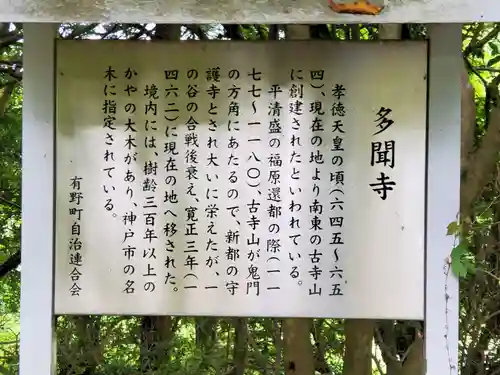 多聞寺
孝徳天皇の頃(六四五〜六五
四)、現在の地より南東の古寺山
に創建されたといわれている。
平清盛の福原還都の際(一一
七七〜一一八〇)、古寺山が鬼門
の方角にあたるので、新都の守
護寺とされ大いに栄えたが、一
の谷の合戦後衰え、寛正三年(一
四六二)に現在の地へ移された。
境内には、樹齢三百年以上の
かやの大木があり、神戸市の名
木に指定されている。
有野町自治連合会